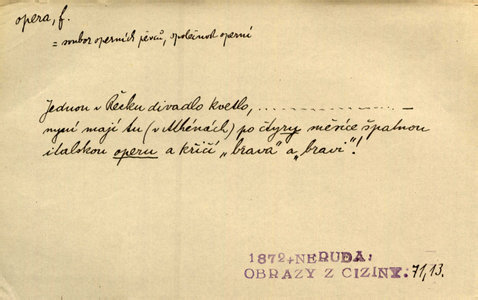 opera, f.
= soubor operních pěvců, společnost operní
Jednou v Řecku divadlo kvetlo, . . . . . . . . . . . —
nyní mají tu (v Athénách) po čtyry měsíce špatnou
italskou operu a křičí „brava" a „bravi"!
1872, NERUDA,
OBRAZY Z CIZINY. 71,13.